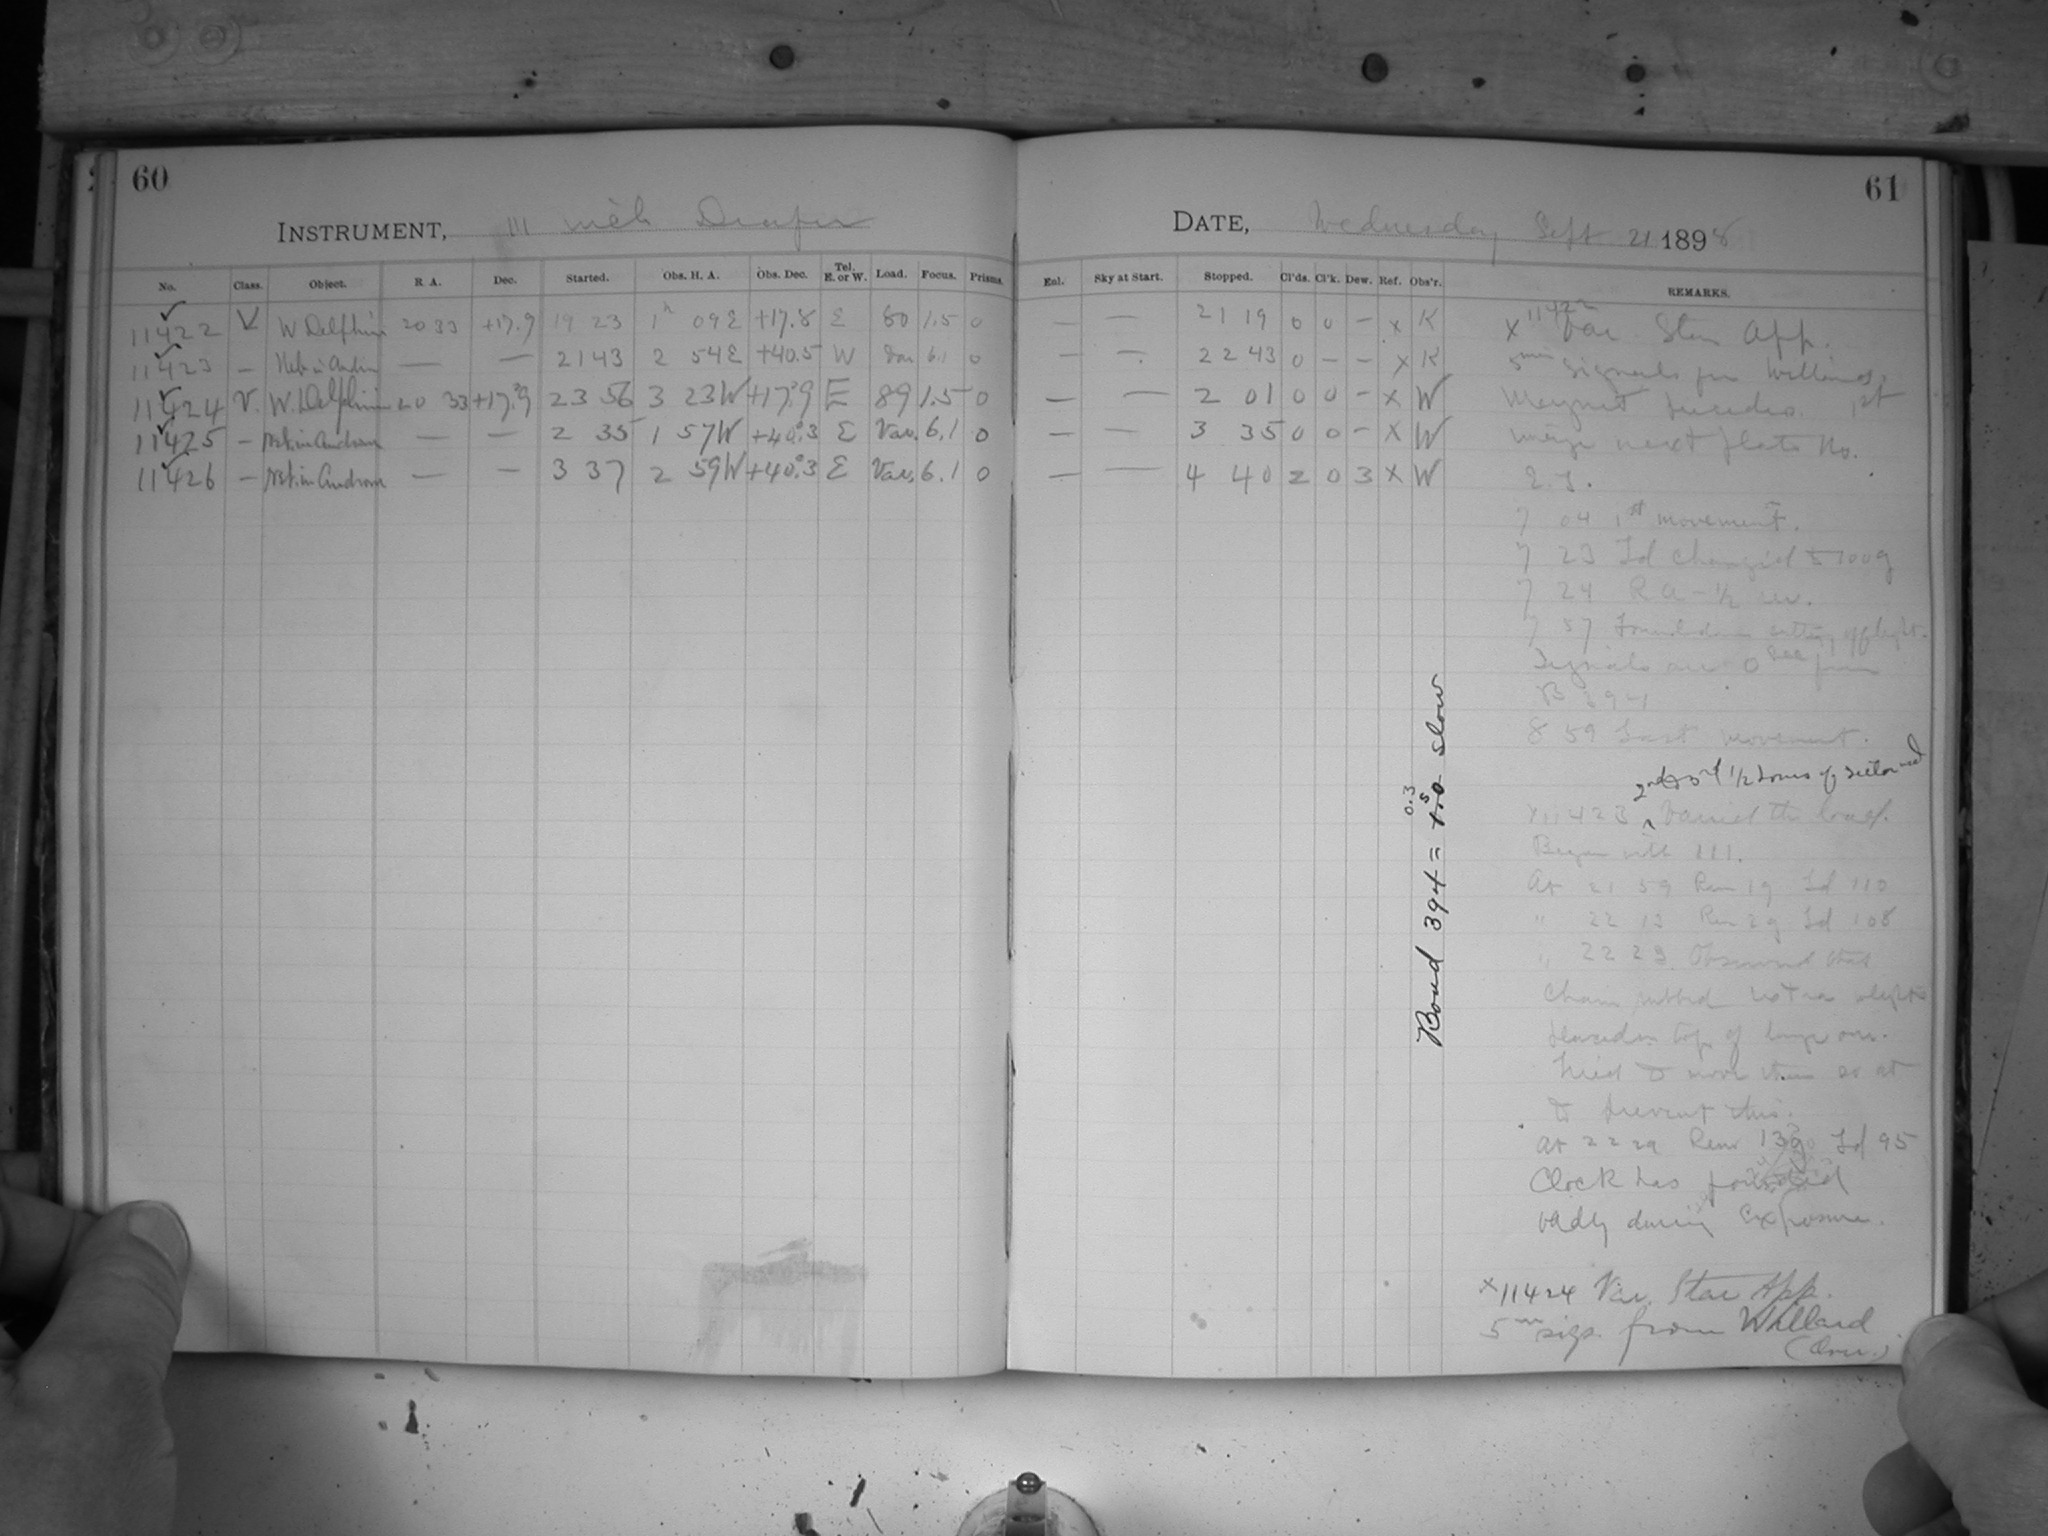 60
INSTRUMENT, 11 inch Draper
No. Class. Object. R. A. Dec. Started. Obs. H. A. Obs. Dec. Tel. E. or W. Load. Focus. Prisms.
11422 V W Delphini 20 33 +17.9 19 23 1h 09 E +17.8 E 80 1.5 0
11423 — Neb in Andro — — 21 43 2 54 E +40.5 W Var 6.1 0
11424 V. W. Delphini 20 33 +17.9 23 56 3 23 W +17.9 E 89 1.5 0
11425 — Neb in Androm — — 2 35 1 57 W +40.3 E Var. 6.1 0
11426 — Neb in Androm — — 3 37 2 59 W +40.3 E Var. 6.1 0
61
DATE, Wednesday Sept 21 1898
Enl. Sky at Start. Stopped. Cl'ds. Cl'k. Dew. Ref. Obs'r. REMARKS.
— — 21 19 0 0 — x K
— — 22 43 0 — — x K
— — 2 01 0 0 — x W
— — 3 35 0 0 — x W
— — 4 40 2 0 3 x W
x 11422 Var. Star App.
5 min signals from Willard,
Magnet 1st
next plate No.
E. S.
7 04 1st movement.
7 23 Ld changed to 100 g
7 24 R A - 1/2 rev.
7 57 setting off
Signals are 0 sec from
B 394
8 59 Last movement.
2nd & 3rd 1/2 hours of
x 11423 ^ Varied the load.
Began with 111.
At 21 59 Rem 1 g Ld 110
" 22 13 Rem 2 g Ld 108
" 22 23 Observed that
chain rubbed extra weights
placed on top of large one.
Tried to move them so as
to prevent this.
At 22 29 Rem 13 g Ld 95
Clock has pounded
badly during exposure.
x 11424 Var. Star App.
5 m sigs. from Willard
(Over.)
Bond 394 = 0.3 slow